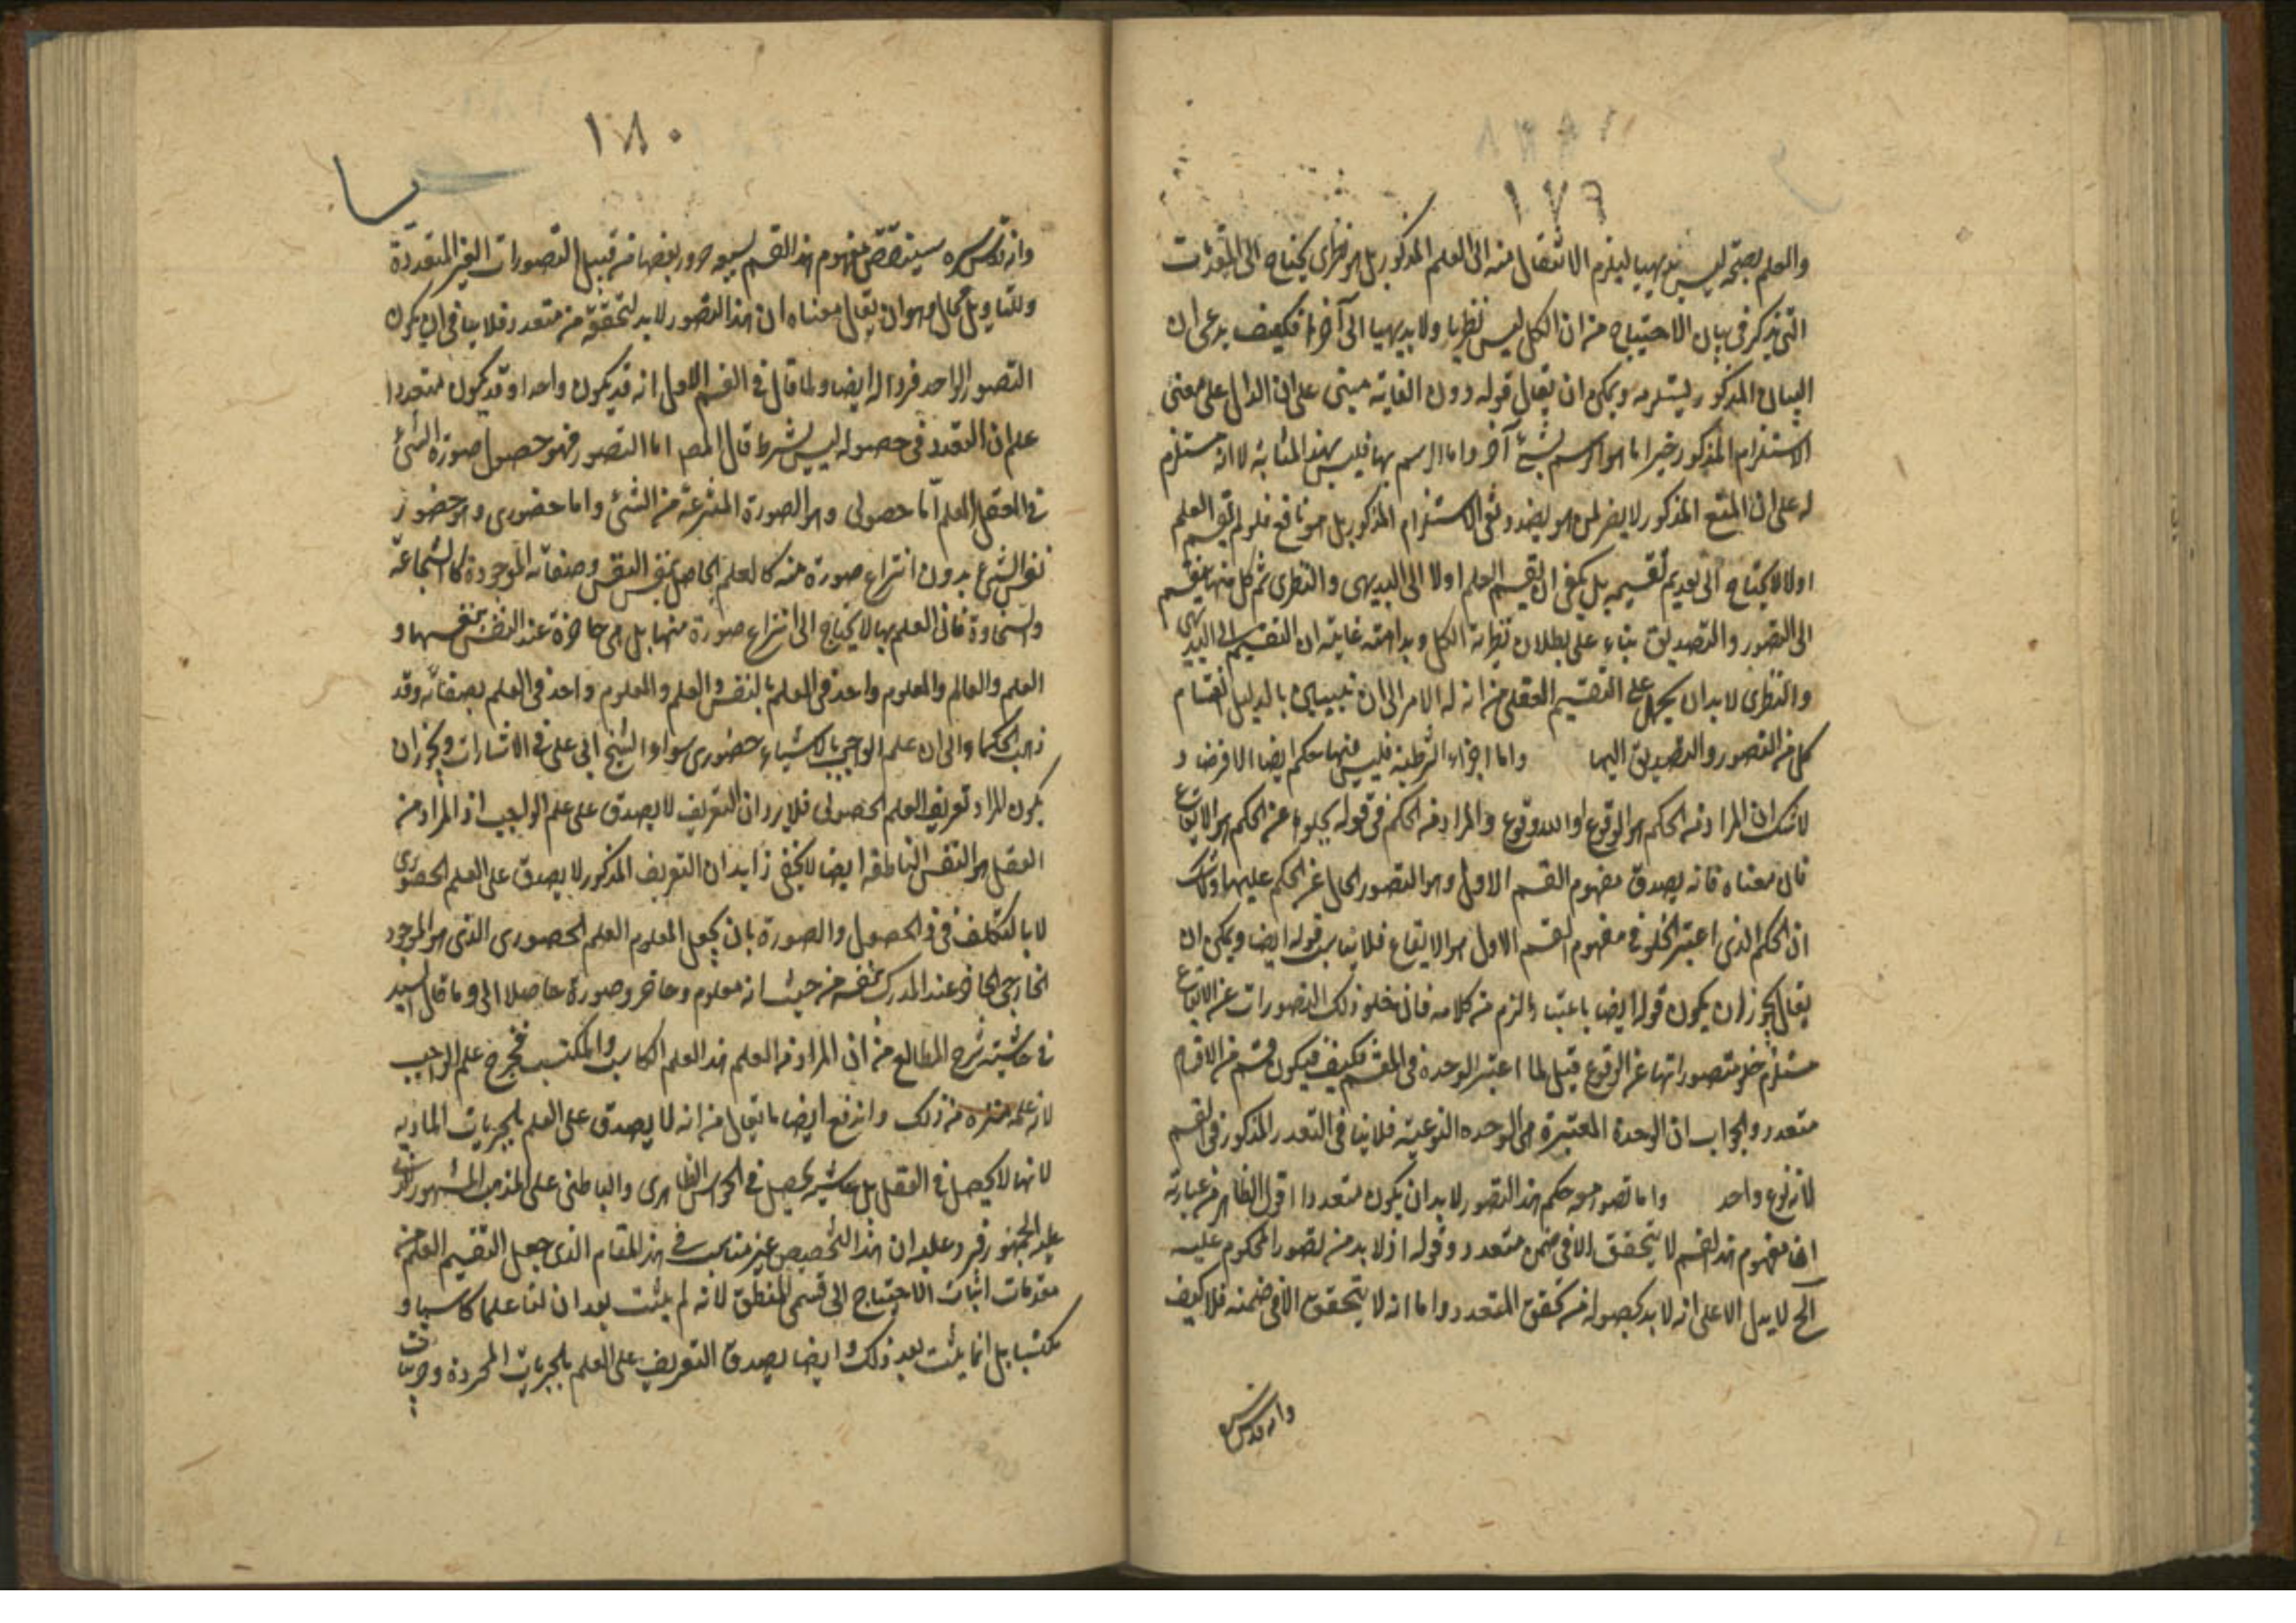 ١٧٩
والعلم بصحته ليس بديهيا ليلزم الانتقال منه الى العلم المذكور بل هو نظرى يحتاج الى المقدمات
التى يذكر فى بيان الاحتياج من ان الكل ليس نظريا ولا بديهيا الى آخرها فكيف يدعى ان
البيان المذكور يستلزمه ويمكن ان يقال قوله دون الغاية مبنى على ان الدال على معنى
الاستلزام المذكور خيرا ما هو الرسم بشئ آخر واما الرسم بها فليس بهذا المثابة لا انه مستلزم
له على ان المنع المذكور لا يضر لمن هو بصدد نفى الاستلزام المذكور بل هو نافع فلو لم يقسم العلم
اولا لا يحتاج الى تقديم تقسيمه بل يكفى ان يقسم العلم اولا الى البديهى والنظرى ثم كل منهما ينقسم
الى التصور والتصديق بناء على بطلان نظرية الكل وبداهته غايته ان التقسيم الى البديهى
والنظرى لا بد ان يحمل على التقسيم العقلى من انه له الامر الى ان تبيين بالدليل انقسام
كل من التصور والتصديق اليهما واما اجزاء الشرطية فليس فيها حكم ايضا الا فرضا و
لا شك ان المراد من الحكم هو الوقوع او اللاوقوع والمراد من الحكم فى قوله يخلوها عن الحكم هو الايقاع
فان معناه فانه يصدق مفهوم القسم الاول وهو التصور الخال عن الحكم عليها ولا شك
ان الحكم الذى اعتبر الخلو فى مفهوم القسم الاول هو الايقاع فلا يناسب قوله ايضا ويمكن ان
يقال يجوز ان يكون قوله ايضا باعتبار ما لزم من كلامه فان خلو ذلك التصورات عن الايقاع
مستلزم خلو متصوراتها عن الوقوع قيل لما اعتبر الوحدة فى المقسم فكيف فيكون قسم من الاقسام
متعدد والجواب ان الوحدة المعتبرة هى الوحدة النوعية فلا ينافى التعدد المذكور فى القسم
لانه نوع واحد واما تصور معه حكم هذا التصور لا بد ان يكون متعددا اقول الظاهر من عبارته
ان مفهوم هذا القسم لا يتحقق الا فى ضمن متعدد وقوله اذ لا بد من تصور المحكوم عليه
الخ لا يدل الا على انه لا بد لحصوله من تحقق المتعدد واما انه لا يتحقق الا فى ضمنه فلا كيف
وانه قدس سره
١٨٠
وانه قدس سره سيتقصص مفهوم هذا القسم بعضها من قبيل التصورات الغير المتعددة
وللتاويل مجال وهو ان يقال معناه ان هذا التصور لا بد لتحققه من متعدد فلا ينافى ان يكون
التصور الواحد فردا له ايضا ولما قال فى القسم الاول انه قد يكون واحدا وقد يكون متعددا
علم ان التعدد فى حصوله ليس بشرط قال المص اما التصور فهو حصول صورة الشئ
فى العقل العلم اما حصولى وهو الصورة المنتزعة من الشئ واما حضورى وهو حضور
نفس الشئ بدون انتزاع صورة منه كالعلم الحاصل بنفس النفس وصفاته الموجودة كالشجاعة
والسخاوة فان العلم بها لا يحتاج الى انتزاع صورة منها بل هى حاضرة عند النفس بنفسها و
العلم والعالم والمعلوم واحد فى العلم بالنفس والعلم والمعلوم واحد فى العلم بصفاته وقد
ذهب الحكماء والى ان علم الواجب بالاشياء حضورى سوا الشيخ ابى على فى الاشارات ويجوز ان
يكون المراد تعريف العلم الحصولى فلا يرد ان التعريف لا يصدق على علم الواجب اذ المراد من
العقل هو النفس الناطقة ايضا لا يخفى زايد ان التعريف المذكور لا يصدق على العلم الحضورى
لا بالتكلف فى الحصول والصورة بان يجعل المعلوم العلم الحصورى الذى هو الموجود
الخارجى الحاضر عند المدرك بنفسه من حيث انه معلوم وحاضر وصورة حاصلا الى وما قال السيد
فى حاشية شرح المطالع من ان المراد من العلم هذا العلم الكاسب والمكتسب فخرج علم الواجب
لانه علمه منزه من ذلك واندفع ايضا ما يقال من انه لا يصدق على العلم بالجزئيات المادية
لانها لا يحصل فى العقل بل يحصل فى الحواس الظاهرى والباطنى على المذهب المشهور الذى
عليه الجمهور فيرد عليه ان هذا التخصيص غير مناسب فى هذا المقام الذى جعل التقسيم العلم من
مقدمات اثبات الاحتياج الى قسمى المنطق لانه لم يثبت بعد ان لنا علما كاسبا و
مكتسبا بل انما يثبت بعد ذلك وايضا يصدق التعريف على العلم بالجزئيات المجردة